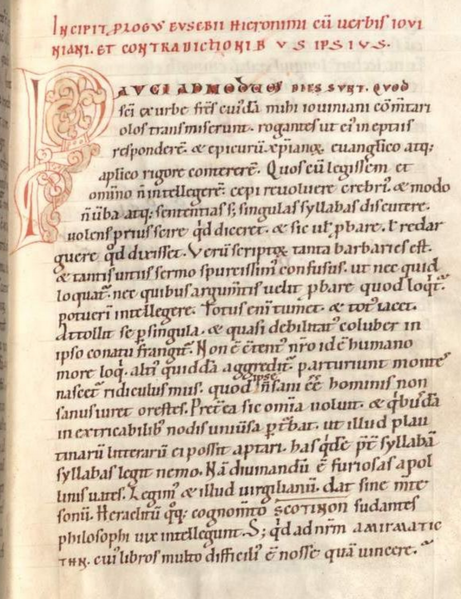 INCIPIT PLOGUS EUSEBII HIERONIMI CŪ VERBIS IOVI
NIANI. ET CONTRADICTIONIBUS IPSIUS.
PAUCI ADMODUM DIES SUNT. QUOD
sci ex urbe frs cuidā mihi iouiniani cōmtari
olos transmiserunt. rogantes ut eiꝰ ineptiis
responderē. & epicurū xpianū euanglico atq;
aplico rigore contererē. Quos cū legissem et
omnino n̄ intellegerē. cepi reuoluere crebriꝰ. & modo
n̄ uba atq; sententias s; singulas syllabas discutere.
uolens prius scire qd diceret. & sic ul ꝓbare. ł redar
guere qd dixisset. Verū scriptoꝝ tanta barbaries est.
& tantis uitiis sermo spurcissimꝰ confusus. ut nec quid
loquat. nec quibus argumtis uelit ꝓbare quod loqt.
potuerī intellegere. Totus eni tumet. & totꝰ iacet.
Attollit se ꝑ singula. & quasi debilitatꝰ coluber in
ipso conatu frangit. Non ē ctentꝰ nro id ē humano
more loq. altiꝰ quiddā aggredit. parturiunt montes
nascet ridiculus mus. quod ipse n̄ sani ēē hominis non
sanus iuret orestes. Pretea sic omia uoluit. & qbusdā
in extricabilibꝰ nodis uniuisa ꝑtbat. ut illud plau
tinarū litterarū ei possit aptari. has qde pt syllabā
syllabas legit nemo. Nā diuinandū ē furiosas apol
linis uates. Legimꝰ & illud uirgilianū. dat sine mte
sonū. Heraclitū qq; cognomto SCOTINON sudantes
philosophi uix intellegunt. S; qd ad nrm AMIRMATIC
THN. cuiꝰ libros multo difficiliꝰ ē nosse quā uincere.